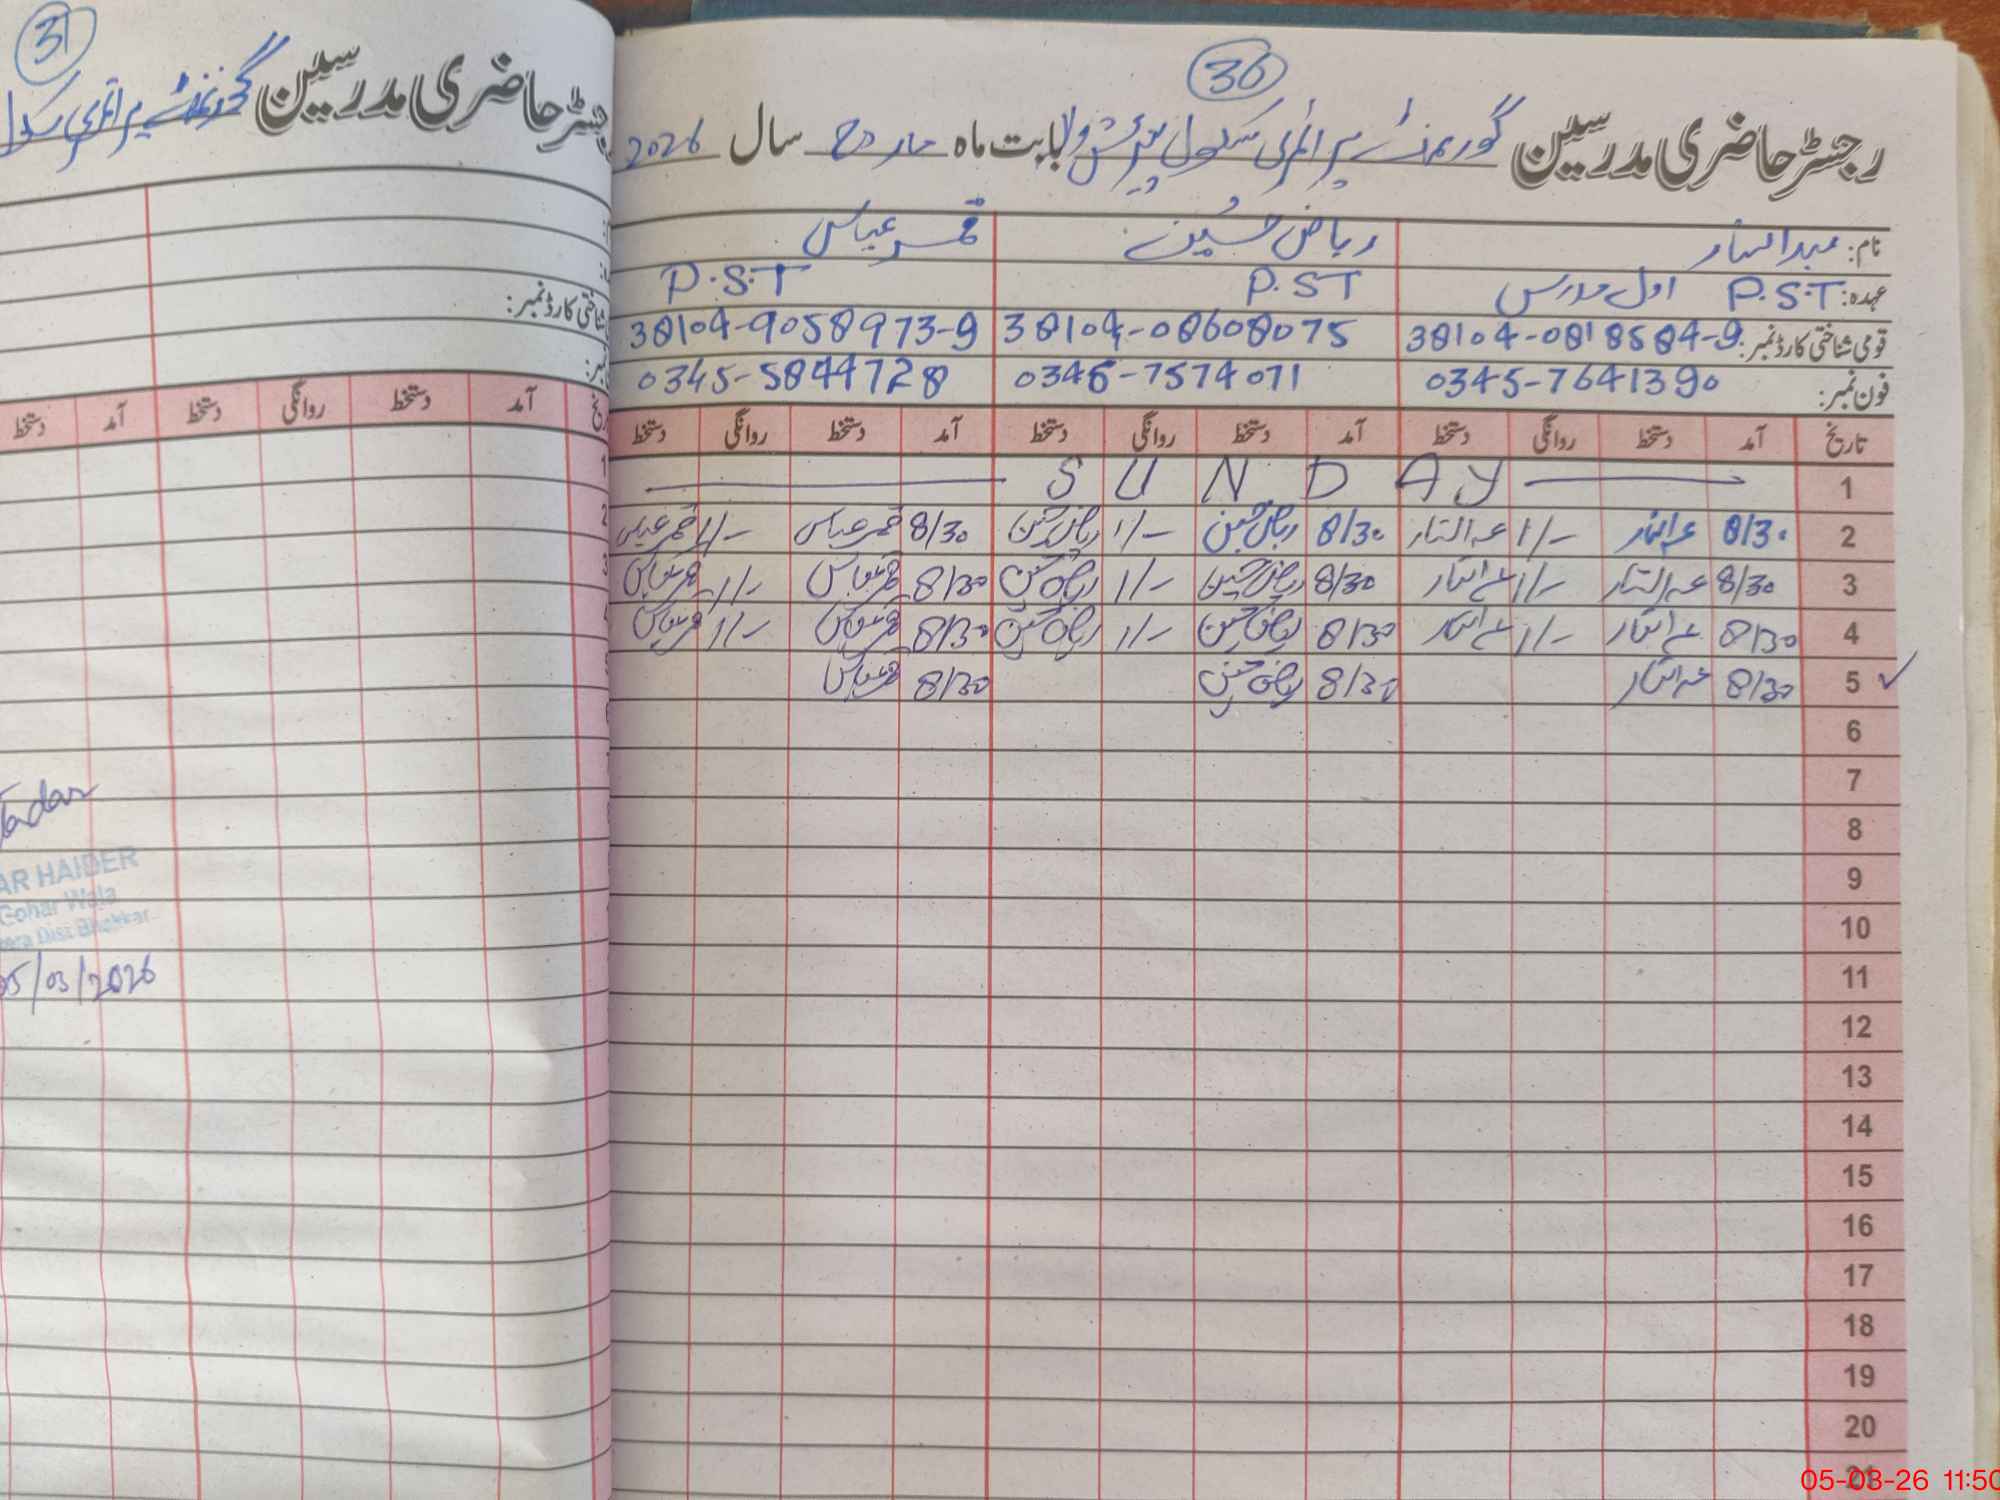 36
رجسٹر حاضری مدرسین گورنمنٹ پرائمری سکول بابت ماہ مارچ سال 2026
نام: عبدالستار ریاض حسین قمر عباس
عہدہ: P.S.T اول مدرس P.ST P.S.T
قومی شناختی کارڈ نمبر: 38104-0818584-9 38104-08608075 38104-9058973-9
فون نمبر: 0345-7641390 0346-7574071 0345-5844728
تاریخ آمد دستخط روانگی دستخط آمد دستخط روانگی دستخط آمد دستخط روانگی دستخط
1 SUNDAY
2 8/30 عبدالستار 1/- عبدالستار 8/30 ریاض حسین 1/- ریاض حسین 8/30 قمر عباس 1/- قمر عباس
3 8/30 عبدالستار 1/- عبدالستار 8/30 ریاض حسین 1/- ریاض حسین 8/30 قمر عباس 1/- قمر عباس
4 8/30 عبدالستار 1/- عبدالستار 8/30 ریاض حسین 1/- ریاض حسین 8/30 قمر عباس 1/- قمر عباس
5 ✓ 8/30 عبدالستار 8/30 ریاض حسین 8/30 قمر عباس
6
7
8
9
10
11
12
13
14
15
16
17
18
19
20
21
31
رجسٹر حاضری مدرسین گورنمنٹ پرائمری سکول
شناختی کارڈ نمبر:
آمد دستخط روانگی دستخط آمد دستخط
AR HAIDER
Gohar Wala
Dist Bhakkar
05/03/2026
05-03-26 11:50